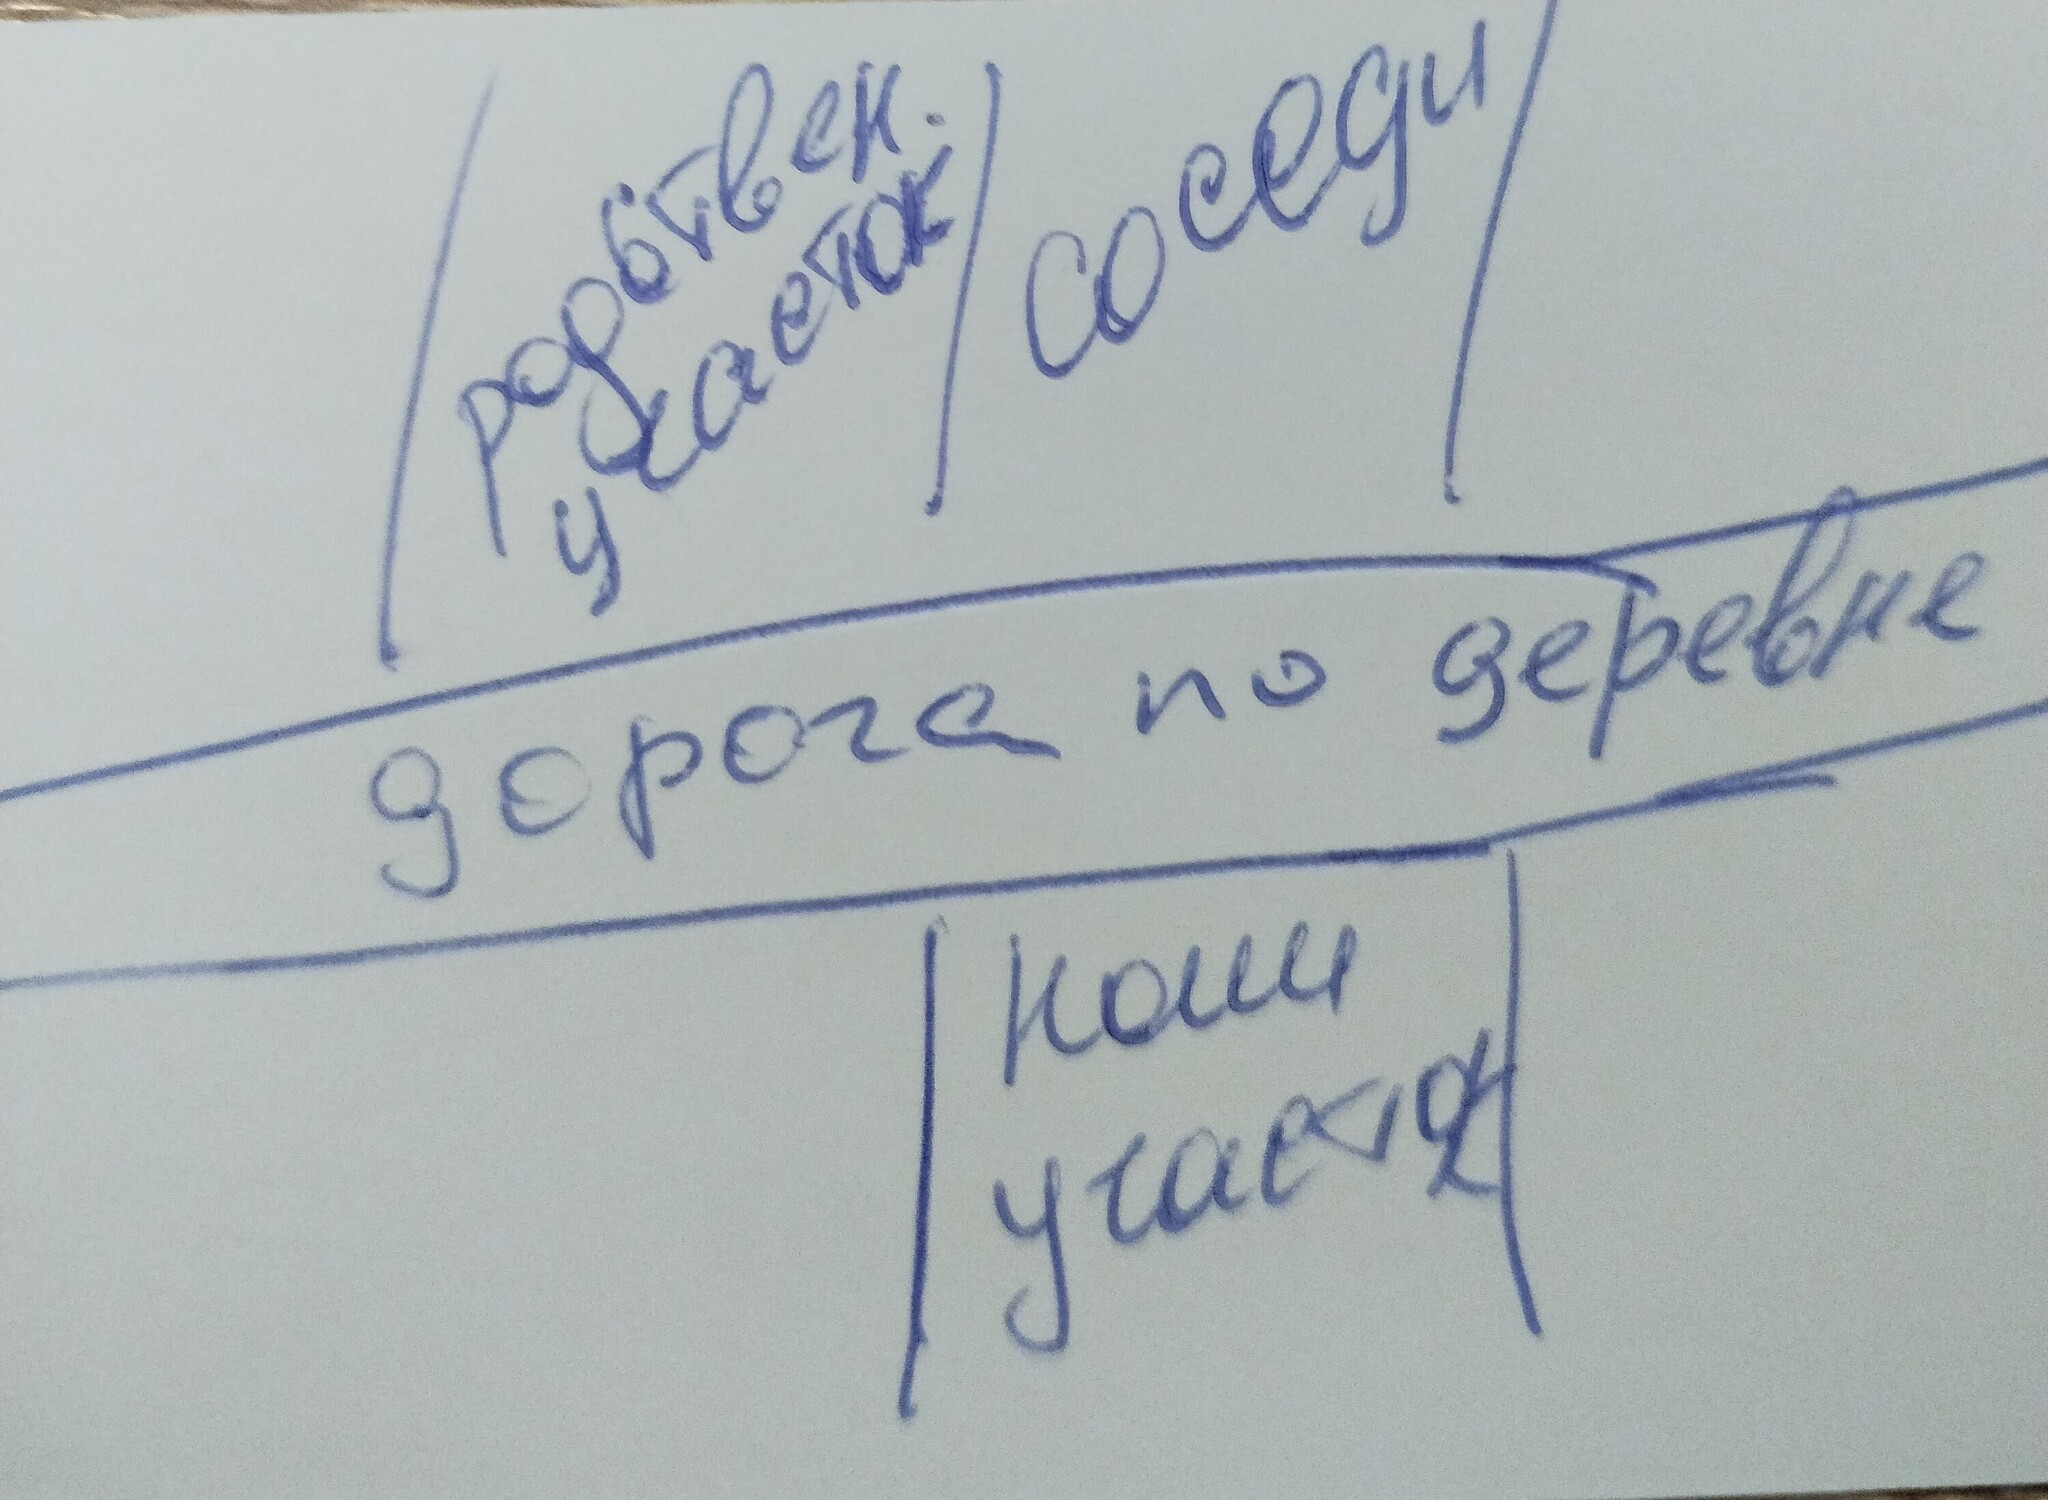 родствен.
участок
соседи
дорога по деревне
наш
участок